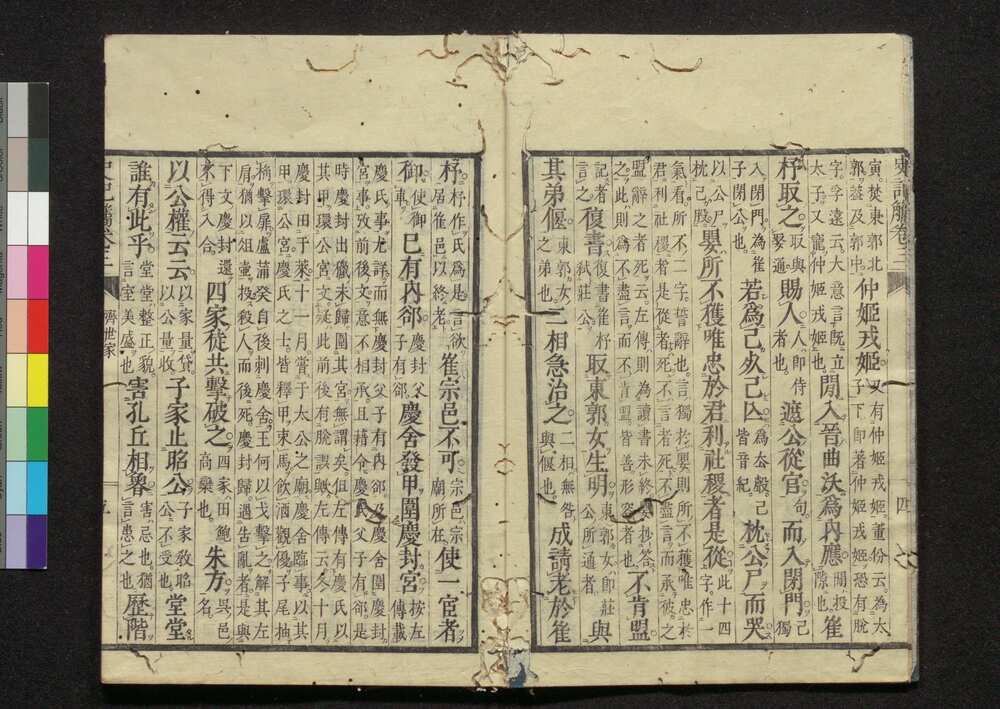 史記觿卷三
四
寅焚東郭北
郭葢及郭中
仲姬戎姬
又有仲姬戎姬董份云為太
子下即著仲姬戎姬恐有脫
字孚遠云大意言既立
太子又寵仲姬戎姬也
閒入晉曲沃為內應
閒投
隙也
崔
杼取之
取與
娶通
賜人
人即侍
者也
遮公從官
句
而入閉門
己獨
入閉門為崔
子閉公也
若為己死己亡
為去
己
皆音紀
枕公尸而哭
以公尸
枕己股
嬰所不獲唯忠於君利社稷者是從
此十四
字作一
氣看所不二字誓辭也言獨於嬰則所不獲唯忠於
君利社稷者是從者死不言者死不盡言而承彼之
盟辭之者死云左傳則為讀書未終晏抄答
之此則為不盡言而不肯盟皆善形容者也
不肯盟
記者
言之
復書
復書書
弒莊公
取東郭女生明
東郭女即莊
公所通者
與
其弟偃
東郭女
之弟也
二相急治之
二相無咎
與偃也
成請老於崔
杼
杼作氏為是言欲
居崔邑以終老
崔宗邑不可
宗邑宗
廟所在
使一宦者
御
使御
車
已有內郤
慶封父
子有郤
慶舍發甲圍慶封宮
按左
傳載
慶氏事尤詳而無慶封父子有內郤及慶舍圍慶封
宮事攷前後文意不相承且藉令慶氏父子有郤是
時慶封出獵未歸圍其宮無謂矣但左傳有慶氏以
其甲環公宮文疑此前後有脫誤歟左傳云冬十月
慶封田于萊十一月嘗于太公之廟慶舍臨事以其
甲環公宮慶氏之士皆釋甲束馬飲酒觀優子尾抽
桷擊扉盧蒲癸自後刺慶舍王何以戈擊之解其左
肩猶以俎壺投殺人而後死慶封歸遇告亂者是與
下文慶封還
不得入合
四家徒共擊破之
四家田鮑
高欒也
朱方
吳邑
名
以公權云云
以家量貸
以公量收
子家止昭公
子家教昭
公不受也
堂堂
誰有此乎
堂堂整正貌
言室美盛也
害孔丘相魯
害忌也猶
言患之也
歷階
史記觿卷三
齊世家
五